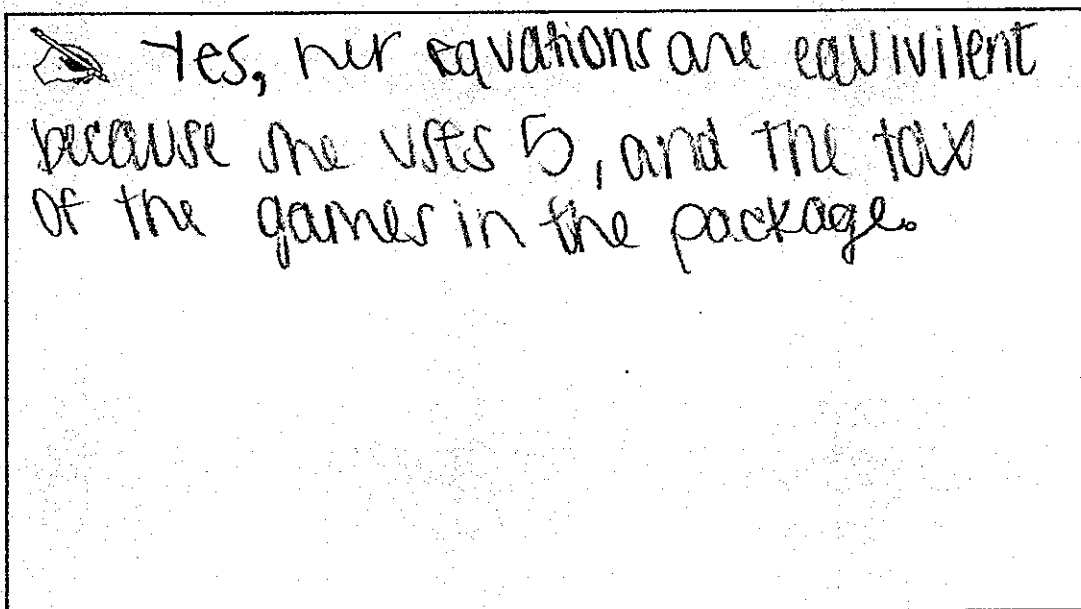 Yes, her equations are equivilent
because she uses 5, and the tax
of the games in the package.